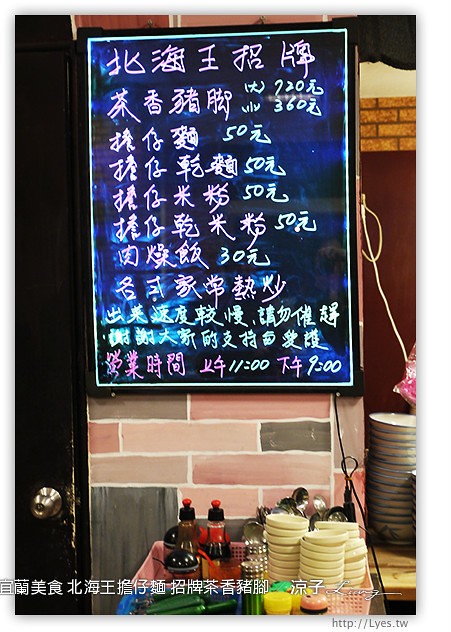 北海王招牌
茶香豬腳 (大) 720元
(小) 360元
擔仔麵 50元
擔仔乾麵 50元
擔仔米粉 50元
擔仔乾米粉 50元
肉燥飯 30元
各式家常熱炒
出菜速度較慢、請勿催趕
謝謝大家的支持与愛護
營業時間 上午11:00 下午9:00
宜蘭美食 北海王擔仔麵 招牌茶香豬腳 涼子
http://Lyes.tw